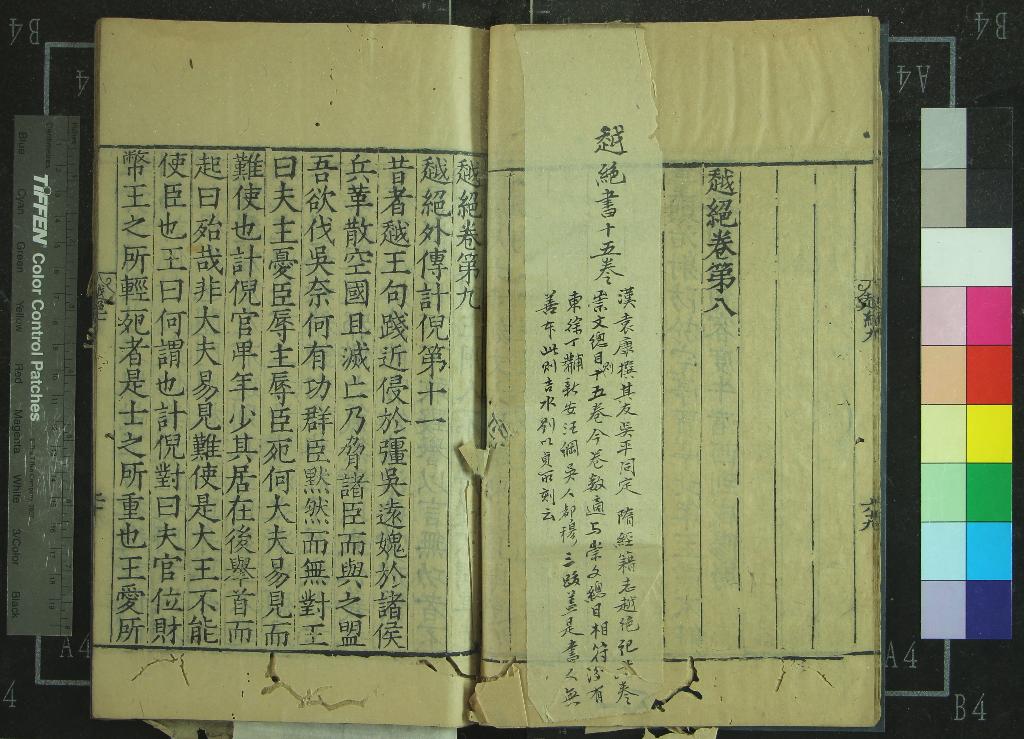 越絕卷第八
越絕書十五卷
漢袁康撰其友吳平同定 隋經籍志越絕記十六卷
崇文總目則十五卷今卷數適與崇文總目相符汾有
東徐丁黼新安汪綱吳人都穆三跋蓋是書人無
善本此則吉水劉以貞所刻云
越絕卷第九
越絕外傳計倪第十一
昔者越王句踐近侵於彊吳遠媿於諸侯
兵革散空國且滅亡乃脅諸臣而與之盟
吾欲伐吳奈何有功群臣黙然而無對王
曰夫主憂臣辱主辱臣死何大夫易見而
難使也計倪官卑年少其居在後舉首而
起曰殆哉非大夫易見難使是大王不能
使臣也王曰何謂也計倪對曰夫官位財
幣王之所輕死者是士之所重也王愛所
TIFFEN Color Control Patches
Blue
Cyan
Green
Yellow
Red
Magenta
White
3/Color
Black
B4
A4
B4
A4
A4
A4
B4
4